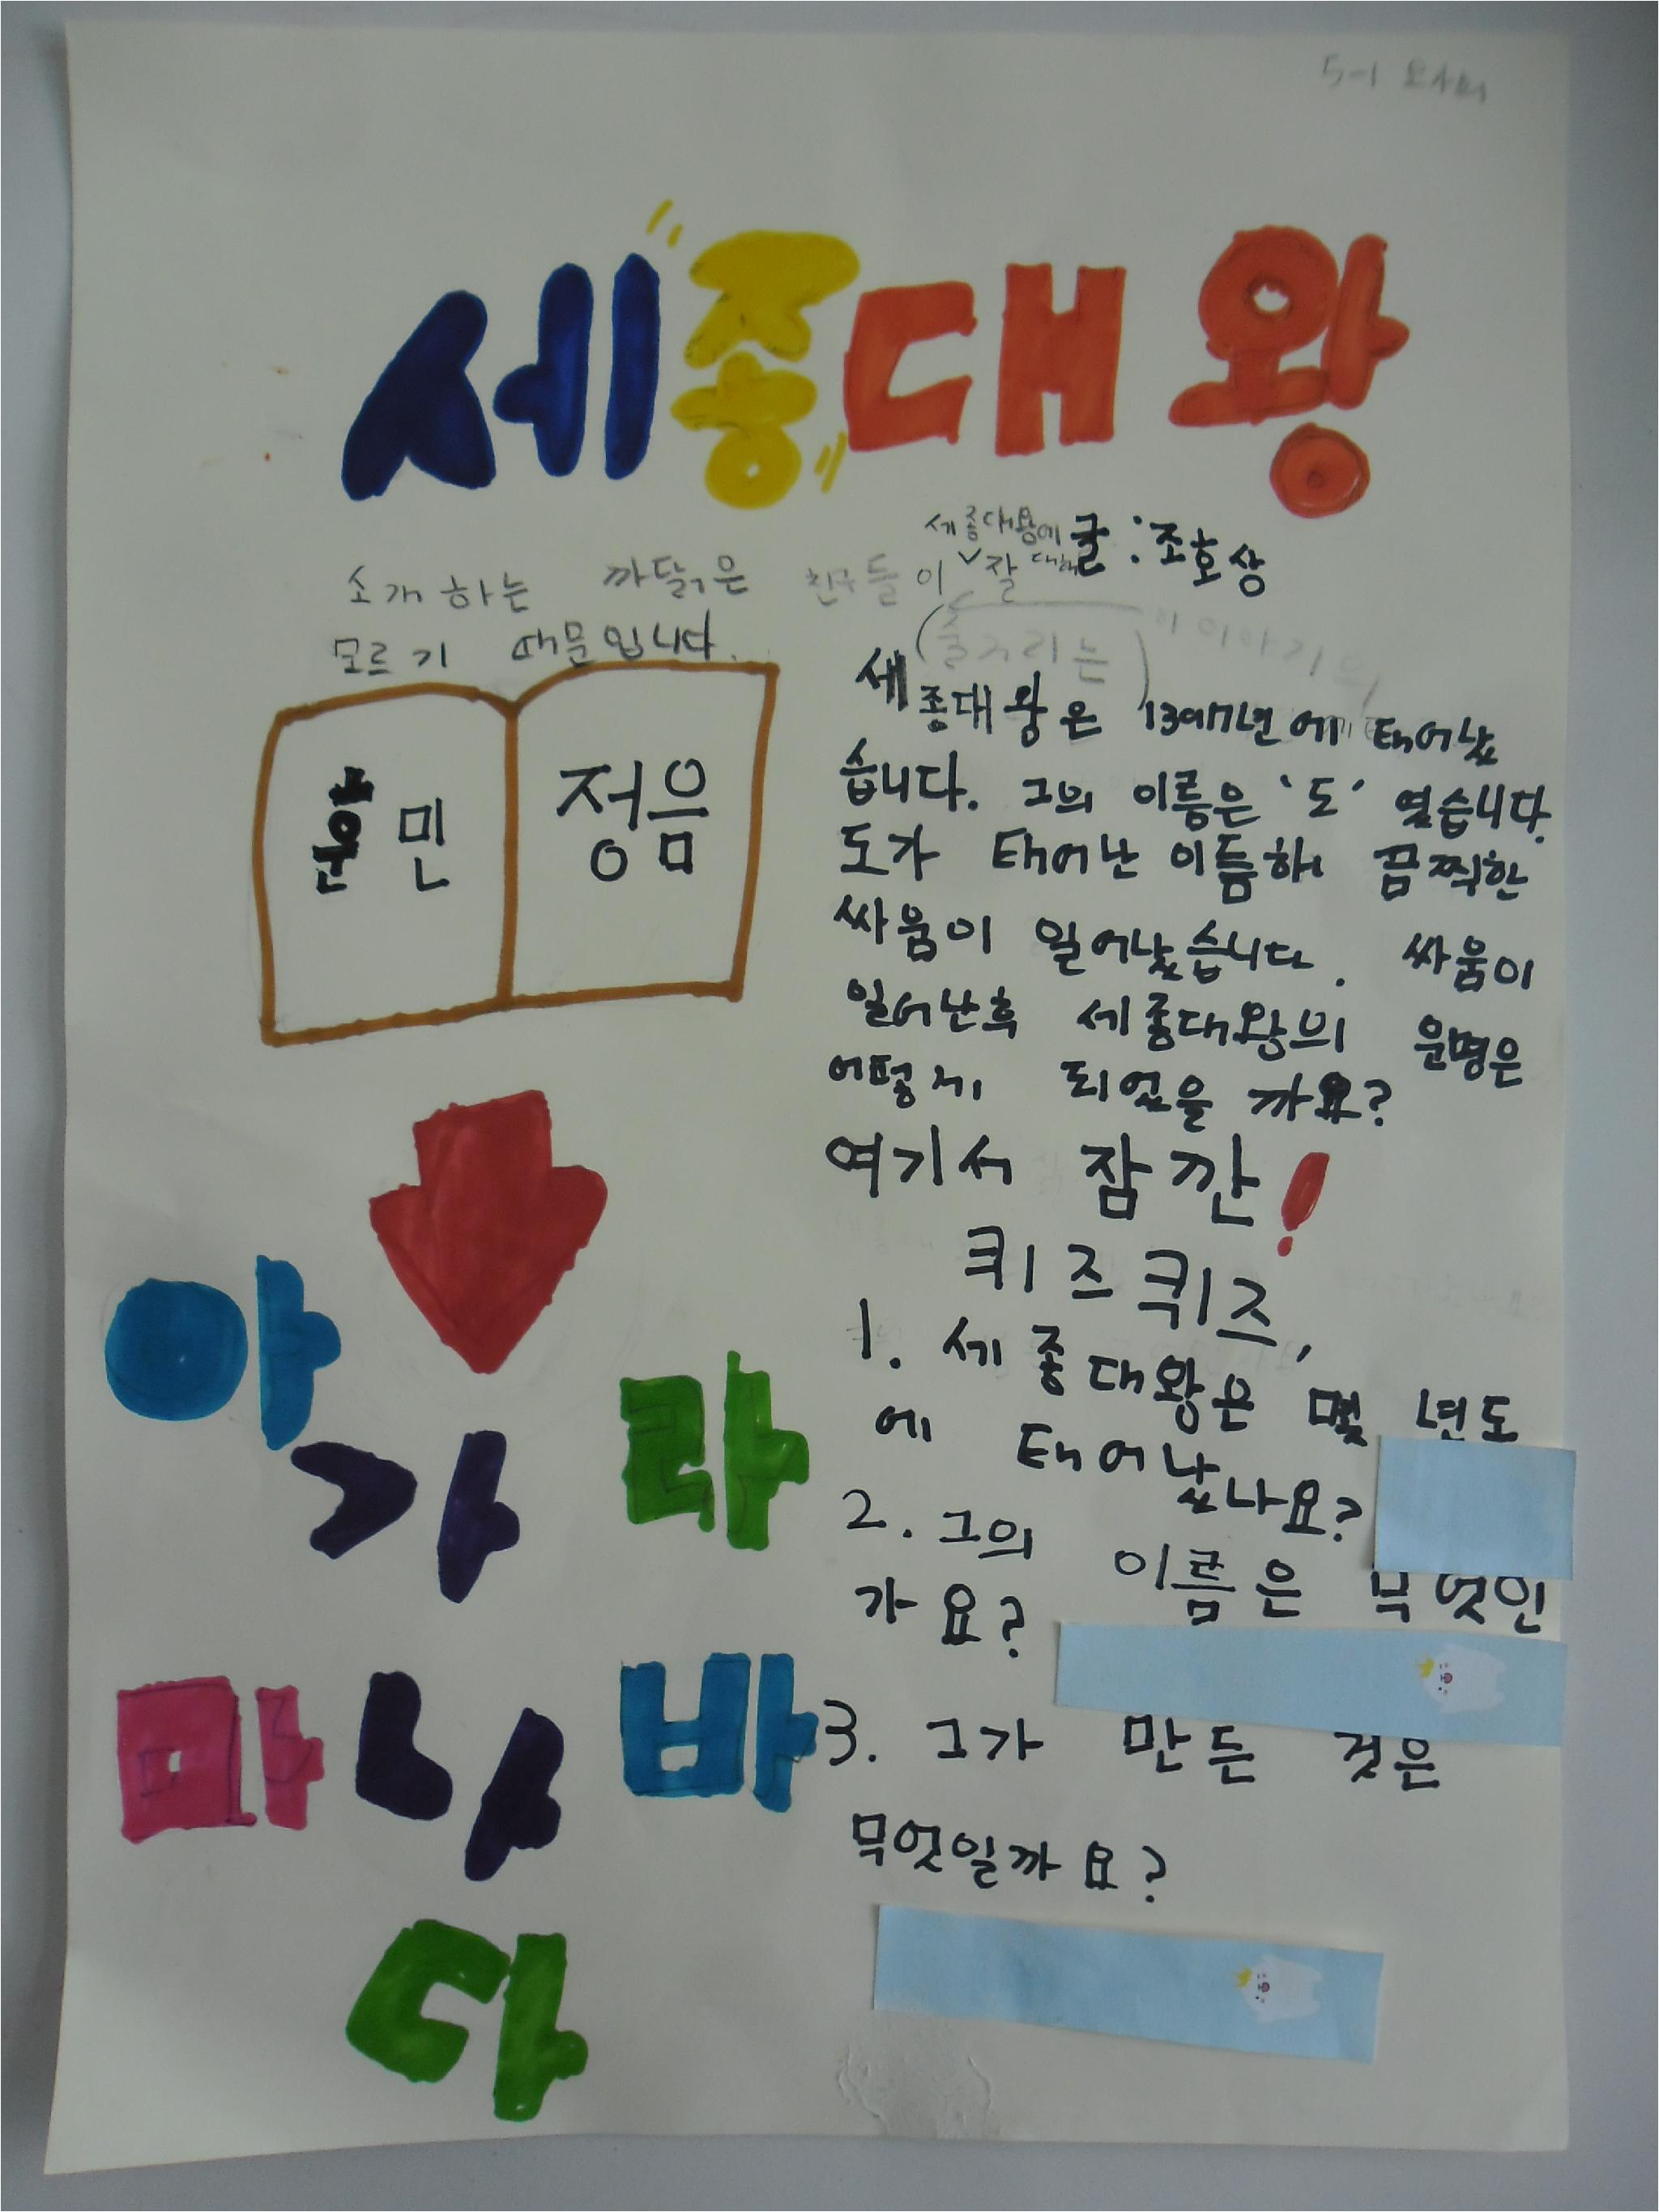 5-1
세종대왕
글:조호상
소개하는 까닭은 친구들이 세종대왕에 대해 잘
모르기 때문입니다.
(줄거리는) 이 이야기의
세종대왕은 1397년에 태어났
습니다. 그의 이름은 '도' 였습니다.
도가 태어난 이듬해 끔찍한
싸움이 일어났습니다. 싸움이
일어난후 세종대왕의 운명은
어떻게 되었을까요?
여기서 잠깐!
퀴즈퀴즈,
1. 세종대왕은 몇 년도
에 태어났나요?
2. 그의 이름은 무엇인
가요?
3. 그가 만든 것은
무엇일까요?
훈민
정음
아
가
라
마
나
바
다